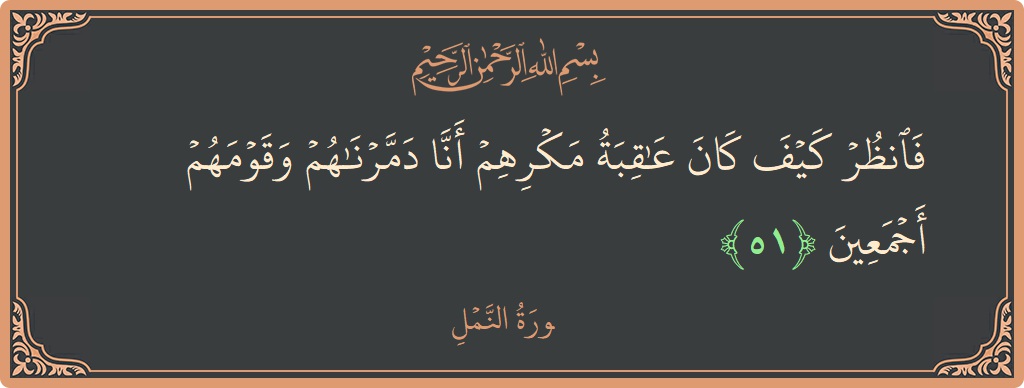 بِسْمِ اللهِ الرَّحْمٰنِ الرَّحِيْمِ
فَٱنظُرۡ كَيۡفَ كَانَ عَـٰقِبَةُ مَكۡرِهِمۡ أَنَّا دَمَّرۡنَـٰهُمۡ وَقَوۡمَهُمۡ
أَجۡمَعِينَ ﴿٥١﴾
ورَةُ النَّمۡلِ